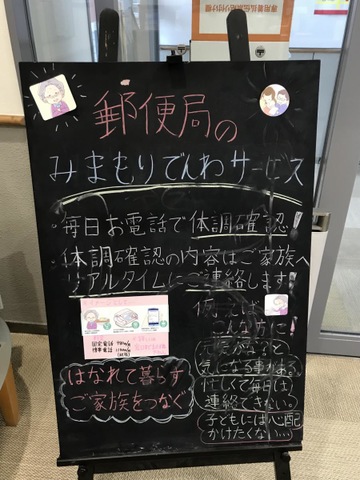 郵便局の
みまもりでんわサービス
・毎日お電話で体調確認!
・体調確認の内容はご家族へ
リアルタイムにご連絡します!
固定電話
携帯電話
はなれて暮らす
ご家族をつなぐ
例えば
こんな方に
気になる事がある
忙しくて毎日は
連絡できない
子どもには心配
かけたくない…